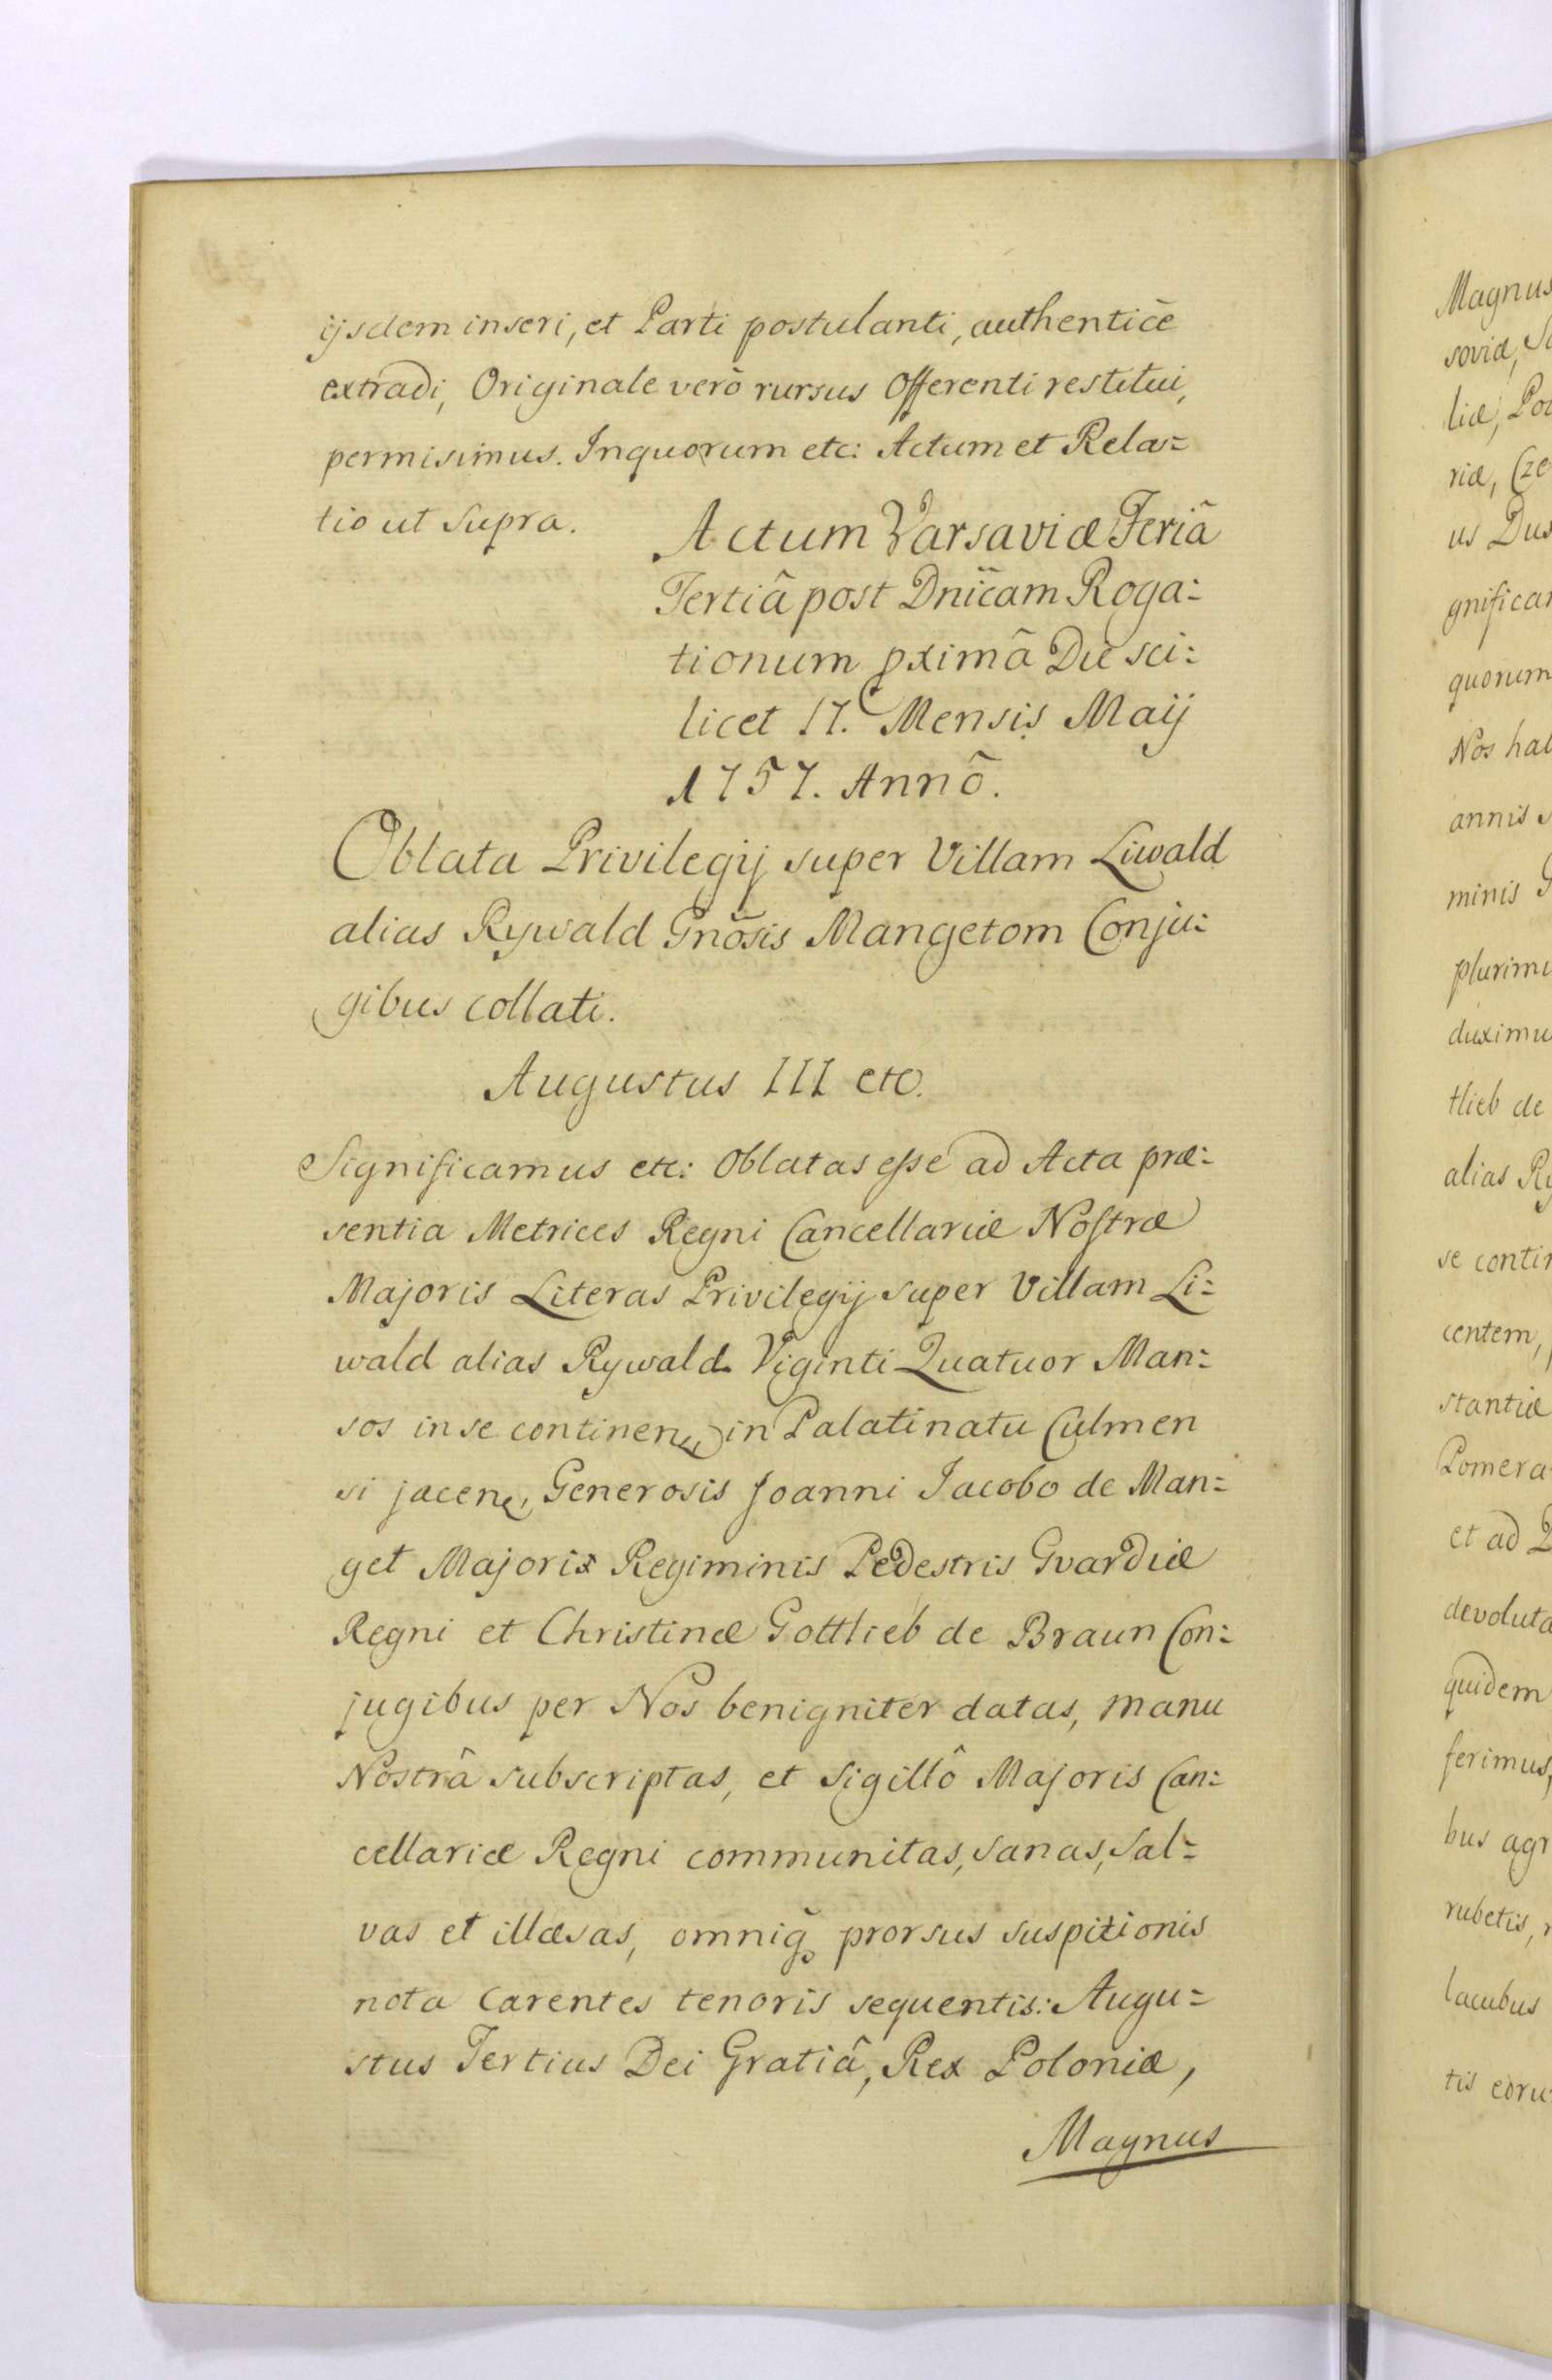 ijsdem inseri, et Parti postulanti, authenticè
extradi, Originale verò rursus Offerenti restitui,
permisimus. Inquorum etc: Actum et Rela=
tio ut Supra.
Actum Varsaviæ Feriâ
Tertiâ post Dnicam Roga=
tionum pximâ Die sci=
licet 17. Mensis Maij
1757. Annô.
Oblata Privilegij super Villam Liwald
alias Rywald Gnõsis Mangetom Conju=
gibus collati.
Augustus III etc.
Significamus etc: Oblatas esse ad Acta præ=
sentia Metrices Regni Cancellariæ Nostræ
Majoris Literas Privilegij super Villam Li=
wald alias Rywald Viginti Quatuor Man=
sos in se continen, in Palatinatu Culmen
si jacen, Generosis Joanni Jacobo de Man=
get Majoris Regiminis Pedestris Gvardiæ
Regni et Christinæ Gottlieb de Braun Con=
jugibus per Nos benigniter datas, manu
Nostrâ subscriptas, et Sigillô Majoris Can=
cellariæ Regni communitas, sanas, sal=
vas et illæsas, omniq prorsus suspitionis
nota carentes tenoris sequentis: Augu=
stus Tertius Dei Gratiâ, Rex Poloniæ,
Magnus
Magnus
soviæ,
liæ,
riæ,
us
quorum
Nos
annis
minis
alias
se
centem,
stantiæ
et ad
quidem
ferimus,
bus
rubetis,
lacubus
tis